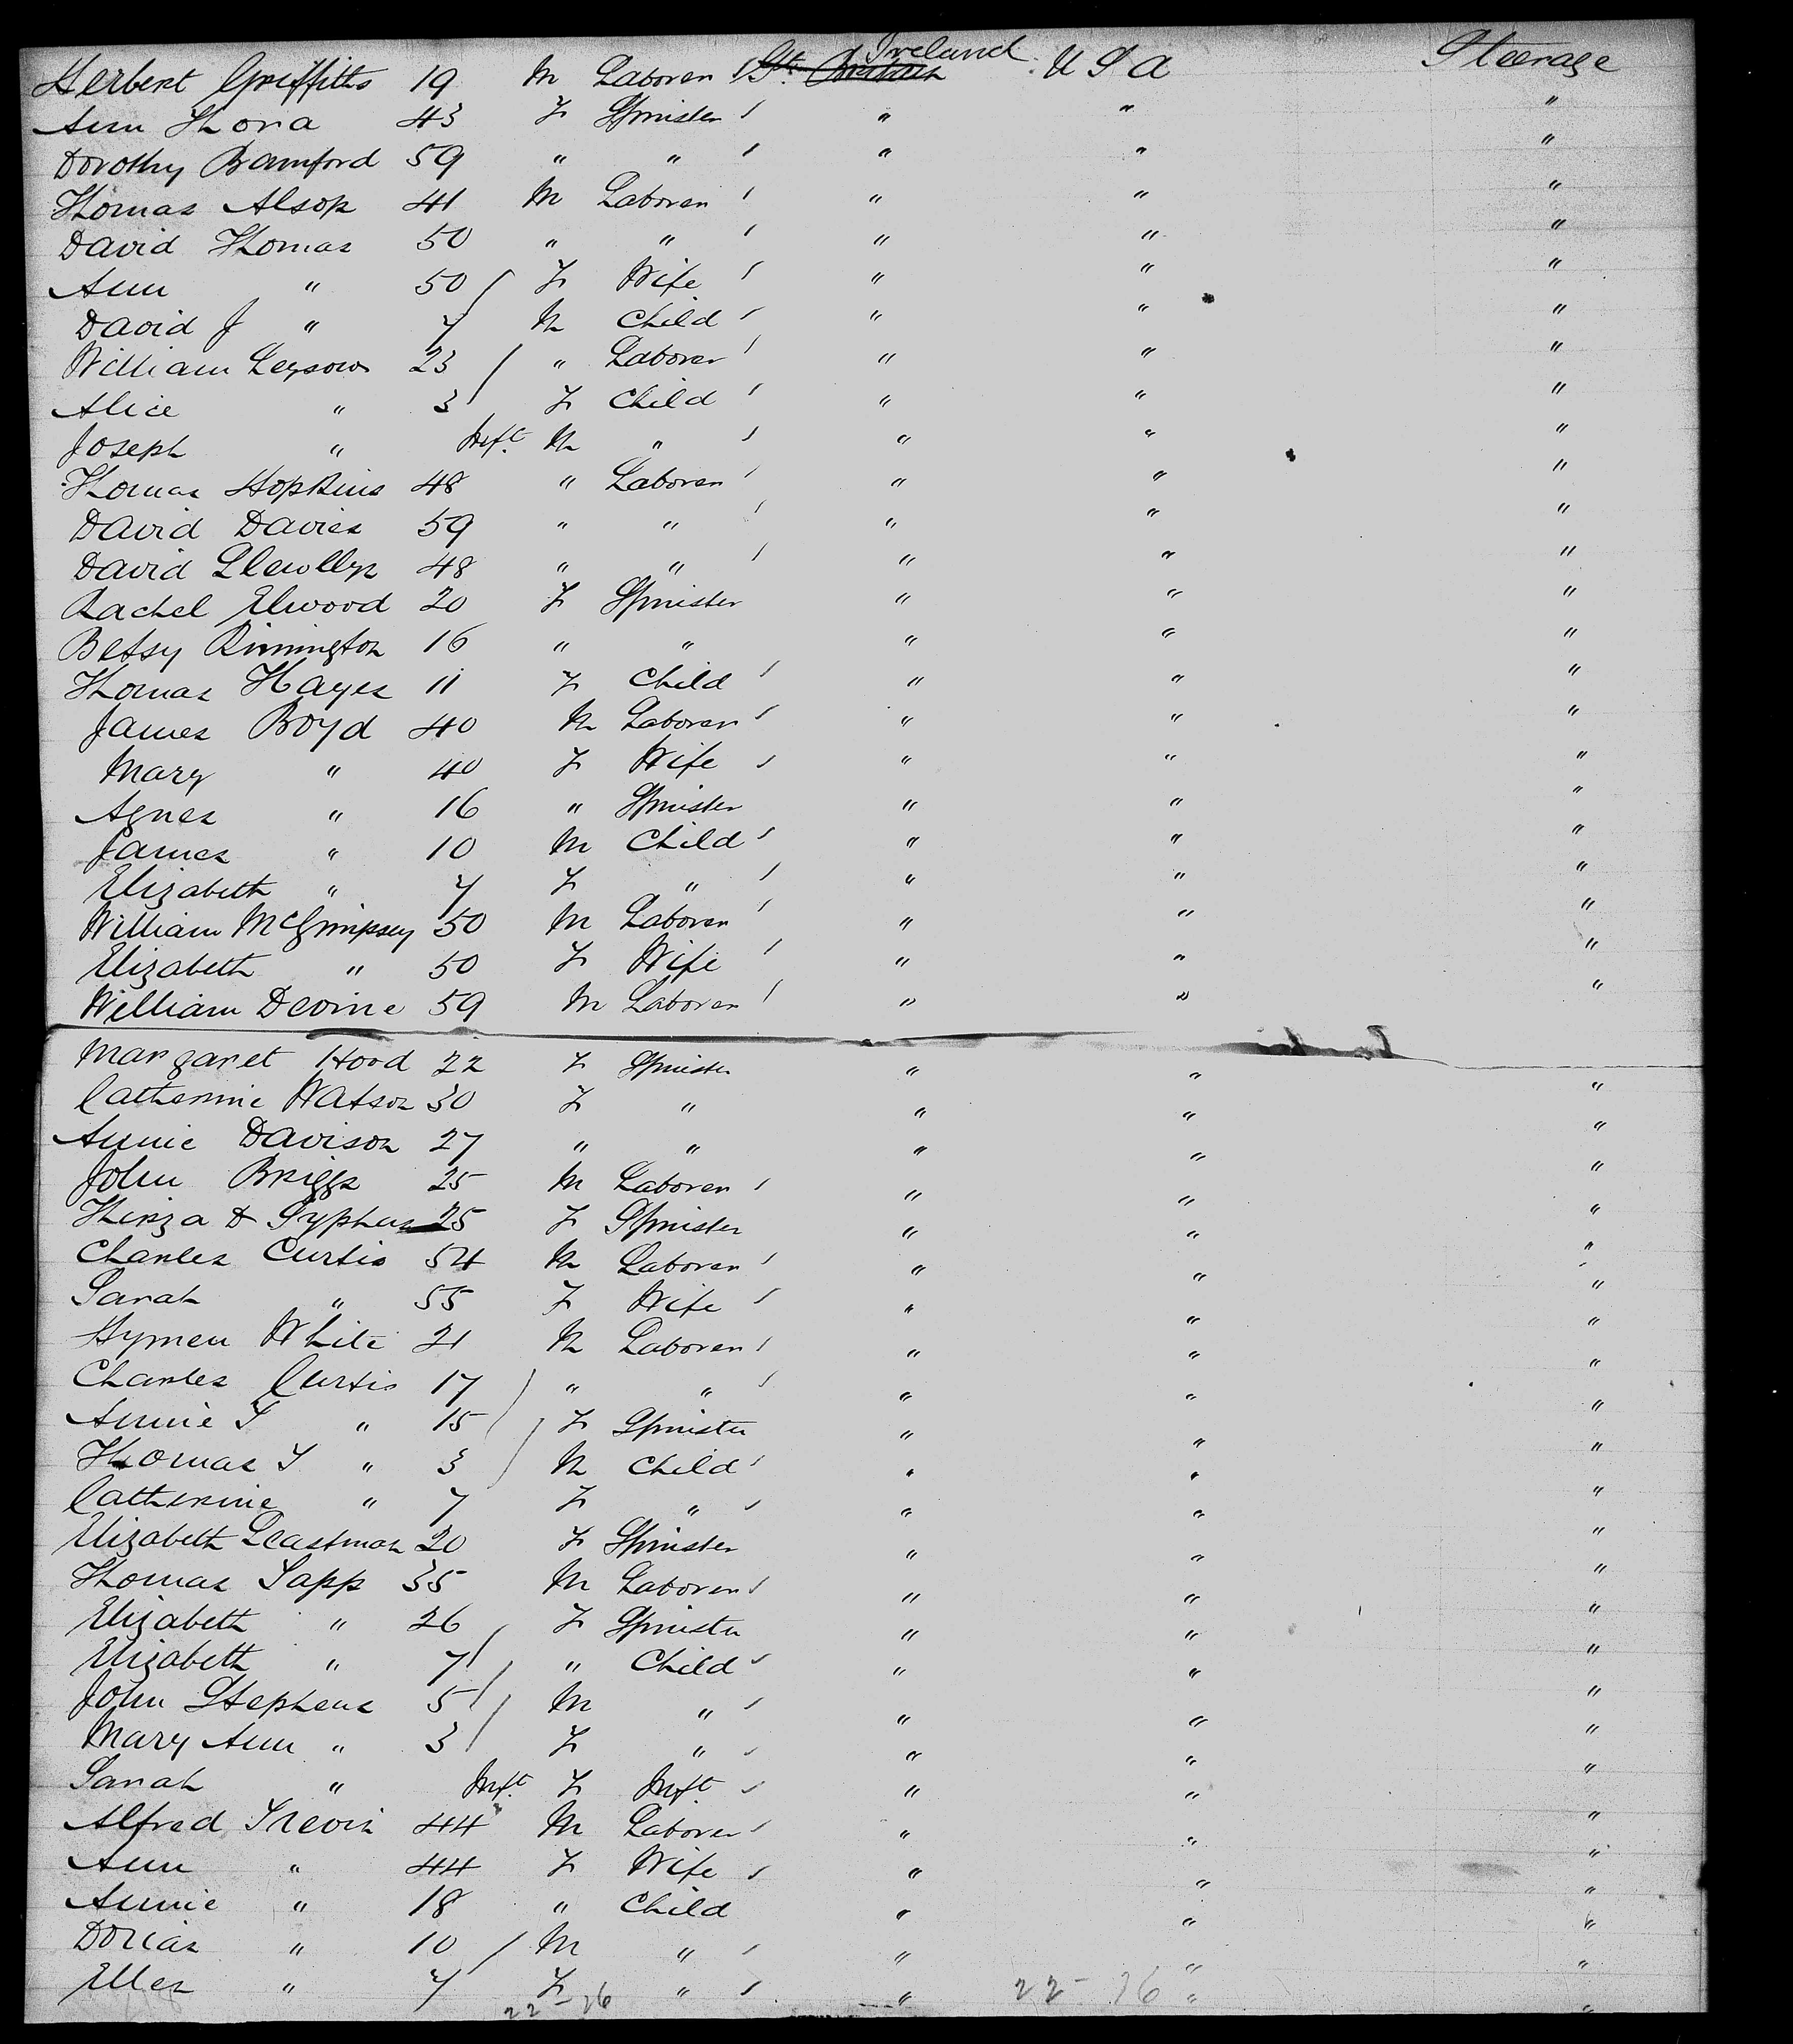 Herbert Griffiths 19 M Laborer Gt. Britain Ireland U S A Steerage
Ann Thora 43 F Spinster " " "
Dorothy Bamford 59 " " " " "
Thomas Alsop 41 M Laborer " " "
David Thomas 50 " " " " "
Ann " 50 F Wife " " "
David J " 7 M Child " " "
William Leyson 23 " Laborer " " "
Alice " 3 F Child " " "
Joseph " Inft. M " " " "
Thomas Hopkins 48 " Laborer " " "
David Davies 59 " " " " "
David Llewllyn 48 " " " " "
Rachel Elwood 20 F Spinster " " "
Betsy Rimington 16 " " " " "
Thomas Hayes 11 F Child " " "
James Boyd 40 M Laborer " " "
Mary " 40 F Wife " " "
Agnes " 16 " Spinster " " "
James " 10 M Child " " "
Elizabeth " 7 F " " " "
William McGimpsey 50 M Laborer " " "
Elizabeth " 50 F Wife " " "
William Devine 59 M Laborer " " "
Margaret Hood 22 F Spinster " " "
Catherine Watson 30 F " " " "
Annie Davison 27 " " " " "
John Briggs 25 M Laborer " " "
Thirza D Syphus 25 F Spinster " " "
Charles Curtis 54 M Laborer " " "
Sarah " 55 F Wife " " "
Hymen White 21 M Laborer " " "
Charles Curtis 17 " " " " "
Annie T " 15 F Spinster " " "
Thomas T " 3 M Child " " "
Catherine " 7 F " " " "
Elizabeth Leastman 20 F Spinster " " "
Thomas Tapp 35 M Laborer " " "
Elizabeth " 26 F Spinster " " "
Elizabeth " 7 " Child " " "
John Stephens 5 M " " " "
Mary Ann " 3 F " " " "
Sarah " Inft. F Inft. " " "
Alfred Trevis 44 M Laborer " " "
Ann " 44 F Wife " " "
Annie " 18 " Child " " "
Dorcas " 10 M " " " "
Ellen " 7 F " " " "
22-26 22-26